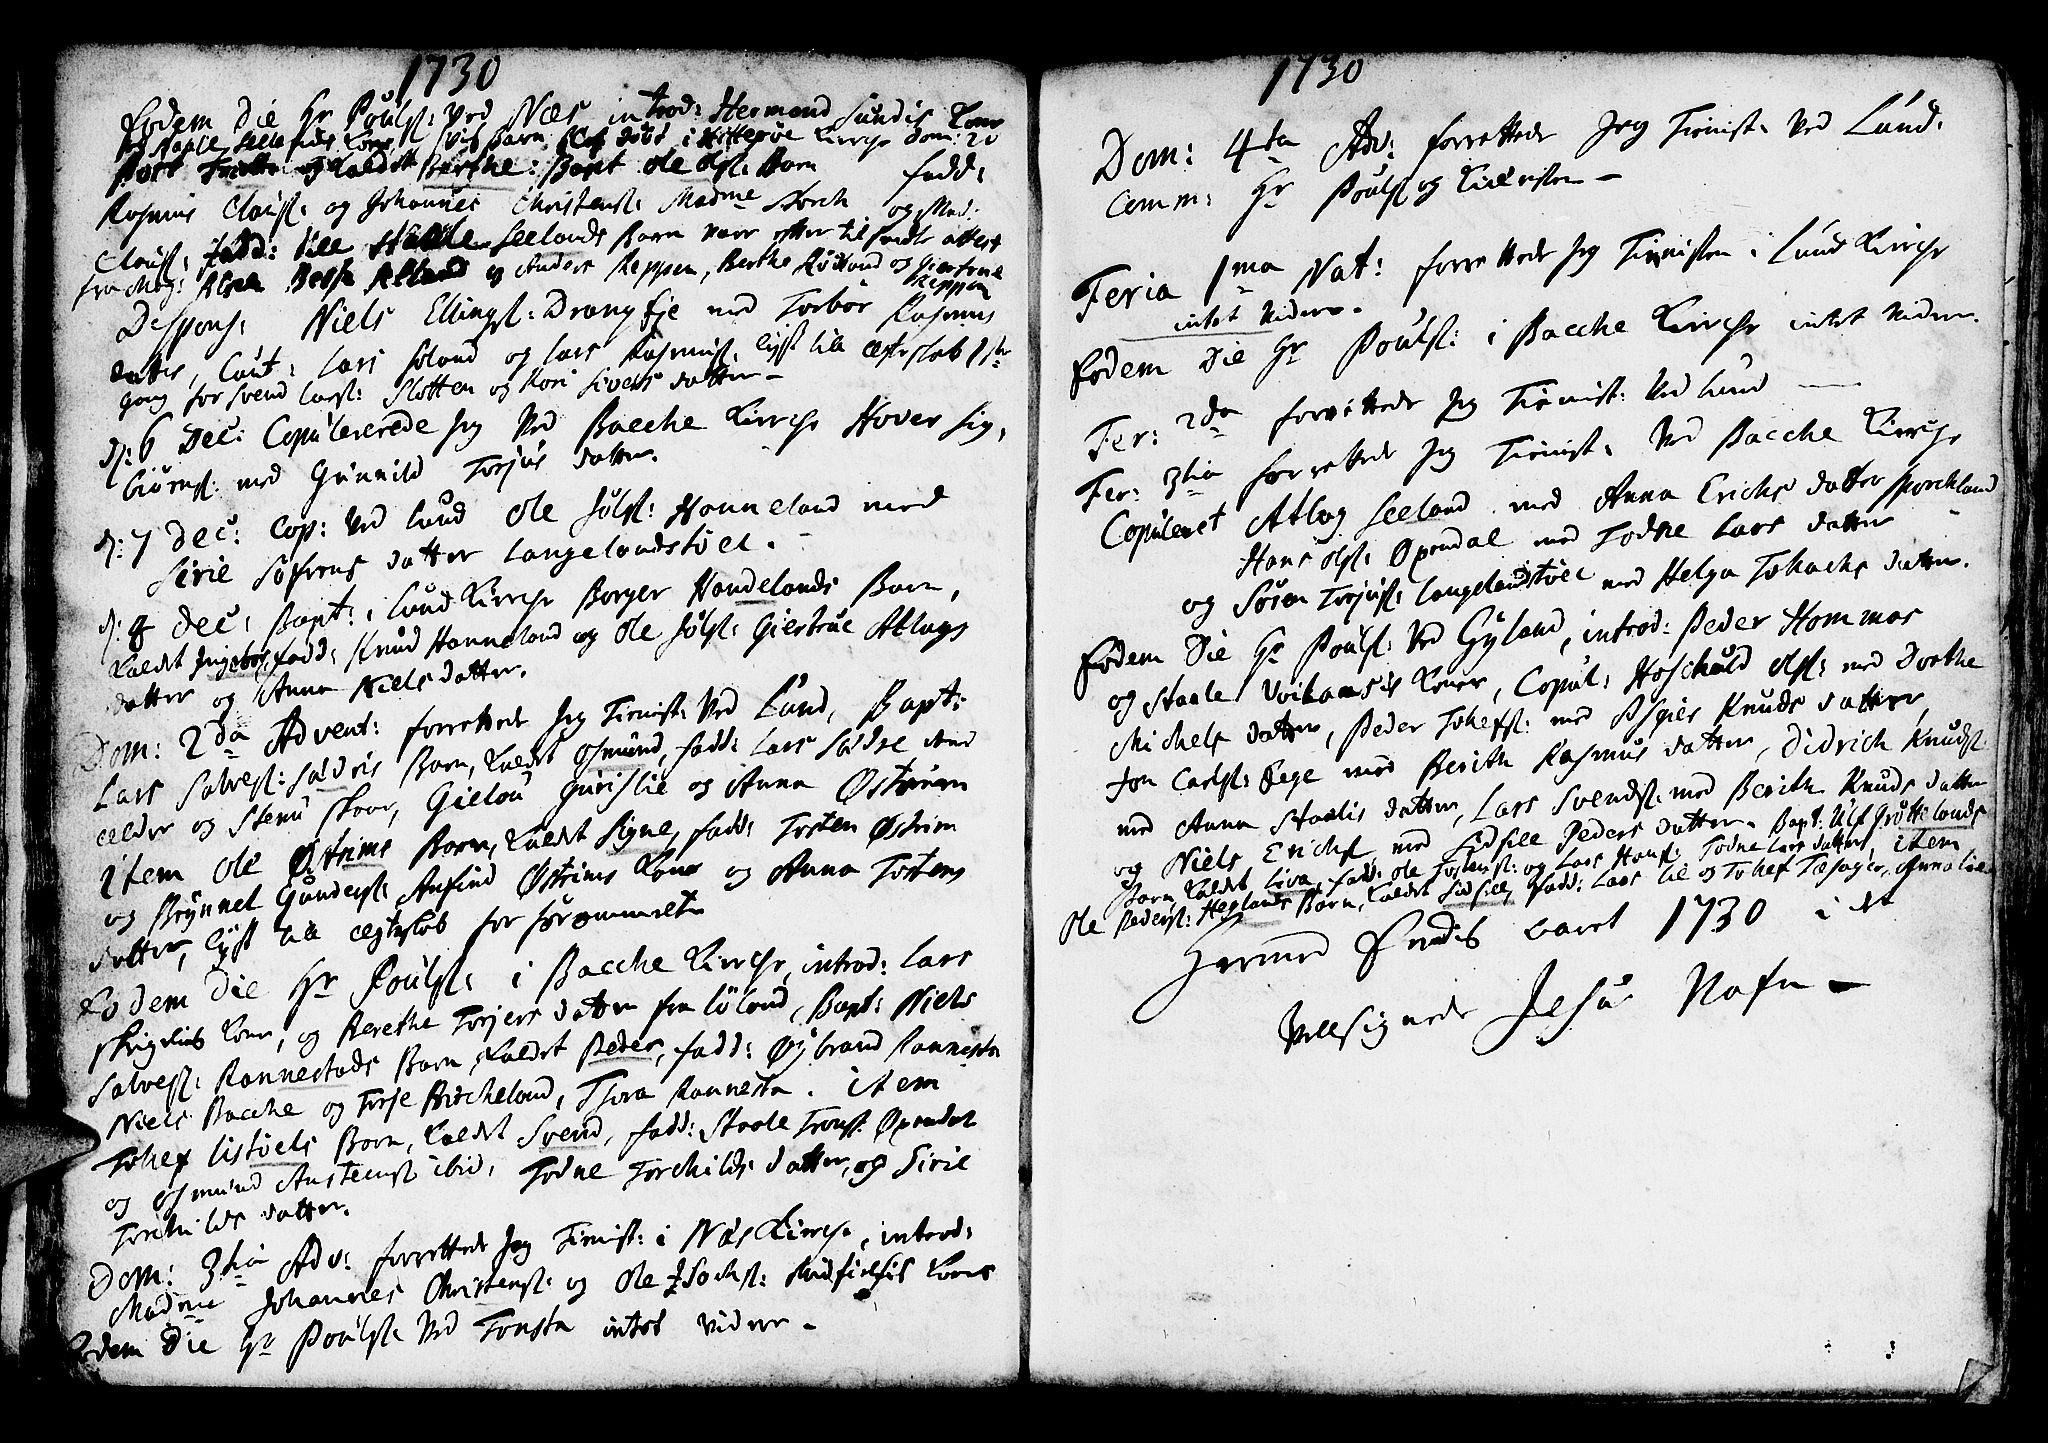 1730
Eodem Die Hr Poulß: Ved Næs introd: Hermond Sundis Kone
Barn blef døbt i Hitterøe Kirche Dom: 20
Post og kaldet Berthe: Bapt Ole Olß: Barn fadd:
Rasmus Clausß: og Johannes Christensß: Madme Storch og Mad:
Clausß: Seelands Barn var efter til sendte attest
og Anders Reppen, Berthe og Giertrue Reppen
Despons: Niels Ellingß: Drangeje med Torbor Rasmus
datter, Caut: Lars og Lars Rasmusß: liust till ægteskab 1ste
gang for Svend Larsß: Slotten og Kari Siverts datter –
d: 6 Dec: Copulererede Jeg Ved Bacche Kirche Hover Sig-
biørnß: med Gunnild Torjus datter.
d: 7 Dec: Cop: Ved Lund Ole Jølß: Hanneland med
Sirie Søfrens datter Langelandstøel.
d: 8 Dec: Bapt: i Lund Kirche Borger Handelands Barn,
Kaldet Ingebor, fadd: Knud Hanneland og Ole Jølß: Giertrue Atlags
datter og Anna Niels datter.
Dom: 2da Advent: forrettede Jeg Tienist: Ved Lund, Bapt:
Lars Salveß: Sædvis Barn, Kaldet Osmund, fadd: Lars
ældre og Stenu Skaar, Gielou Guislie og Anna Østreim
item Ole Østrims Barn, Kaldet Signe, fadd: Torsten Østrim
og Brynnel Gundersß: Anfind Østrims Kone og Anna Tostens
datter, lyst till ægteskab for förommelte
Eodem Die Hr Poulß: i Bacche Kirche, introd: Lars
Kone, og Berethe Torjers datter fra Løland, Bapt: Niels
Salveß: Rannestads Barn, Kaldet Peder, fadd: Øybrand Rannesta
Niels Bacche og Torje Bircheland, Thora Rannesta. item
Tohef Listøels Barn, Kaldet Svend, fadd: Staale Tronß: Øpendal
og Osmund Austensß: ibid, Todne Torchilds datter, og Sirie
Torchilds datter.
Dom: 3tia Adv: forrettede Jeg Tienist: i Næs Kirche, introd:
Madme Johannes Christensß: og Ole Isachß: Kones
Eodem Die Hr Poulß: Ved Tonsta intet videre –
1730
Dom: 4ta Adv: forrettede Jeg Tienist: Ved Lund.
Comm: Hr Poulß og –
Feria 1ma Nat: forrettede Jeg Tienisten i Lund Kirche
intet Videre.
Eodem Die Hr Poulß: i Bacche Kirche intet Videre.
Fer: 2da forrettede Jeg Tienist: Ved Lund
Fer: 3tia forrettede Jeg Tienist: Ved Bacche Kirche
Copuleret Atlag Seeland med Anna Erichs datter Sporckland
Hans Olß: Øpendal med Todne Lars datter
og Søren Torjusß: Langelandstøel med Helga Tohachs datter.
Eodem Die Hr Poulß: Ved Gyland, introd: Peder Hommas
og Staale Kone, Copul: Hoschuld Olß: med Dorthe
Michels datter, Peder Tohefß: med Asgier Knuds datter,
Jon Carlsß: Ege med Berith Rasmus datter, Didrich Knudsß:
med Anna Staalis datter, Lars Svendsß: med Berith Knuds datter
og Niels Erichß med Sidselle Peders datter. Bapt: Ulf Grøttelands
Barn, Kaldet Liva, fadd: Ole Tostensß: og Lars Hansß: Todne Lars datter, item
Ole Pedersß: Heglands Barn, Kaldet Sidsill, fadd: Lars Lie og Tohef
Hermed Endis aaret 1730 i dt
Velsignede Jesu Nafn –